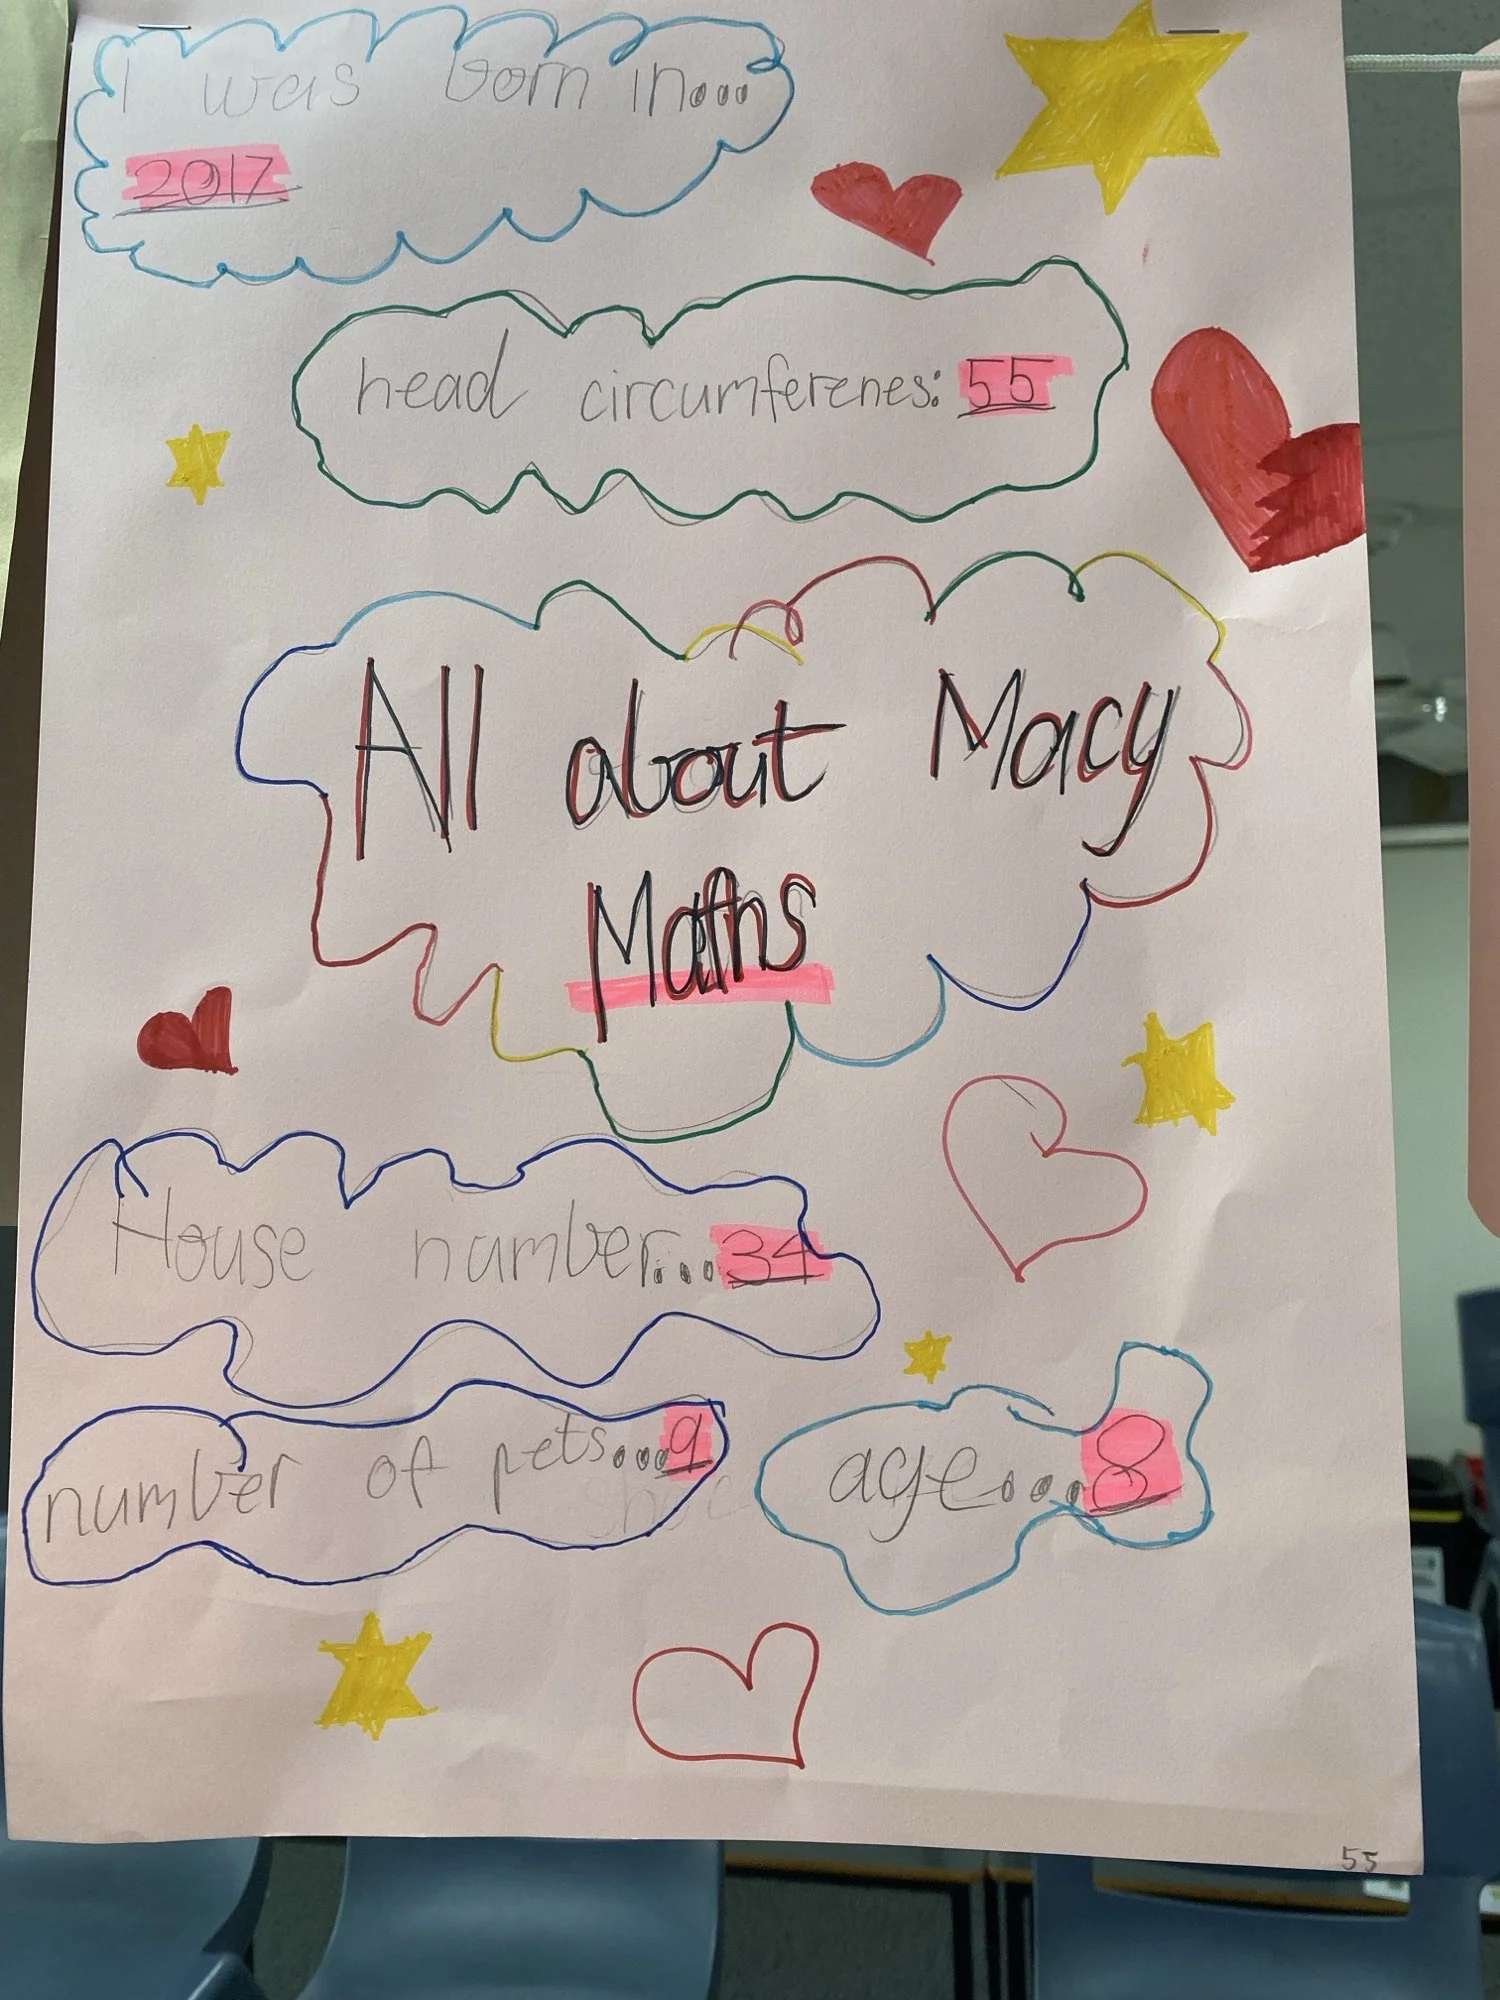 I was born in...
2017
head circumferenes: 55
All about Macy
Maths
House number...34
number of pets...9
age...8
55